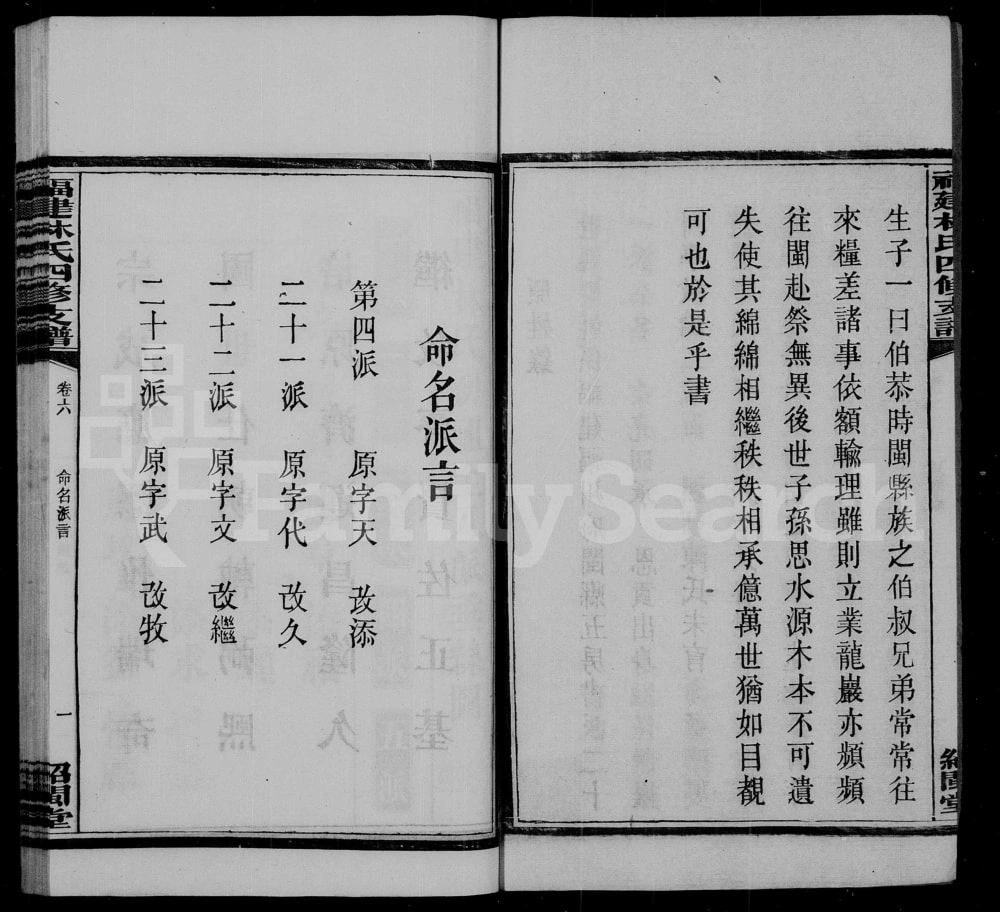 福建林氏四修支譜
紹閩堂
生子一曰伯恭時閩縣族之伯叔兄弟常常往
來糧差諸事依額輸理雖則立業龍巖亦頻頻
往閩赴祭無異後世子孫思水源木本不可遺
失使其綿綿相繼秩秩相承億萬世猶如目覩
可也於是乎書
命名派言
第四派 原字天 改添
二十一派 原字代 改久
二十二派 原字文 改繼
二十三派 原字武 改牧
福建林氏四修支譜
卷六
命名派言
一
紹閩堂
FamilySearch